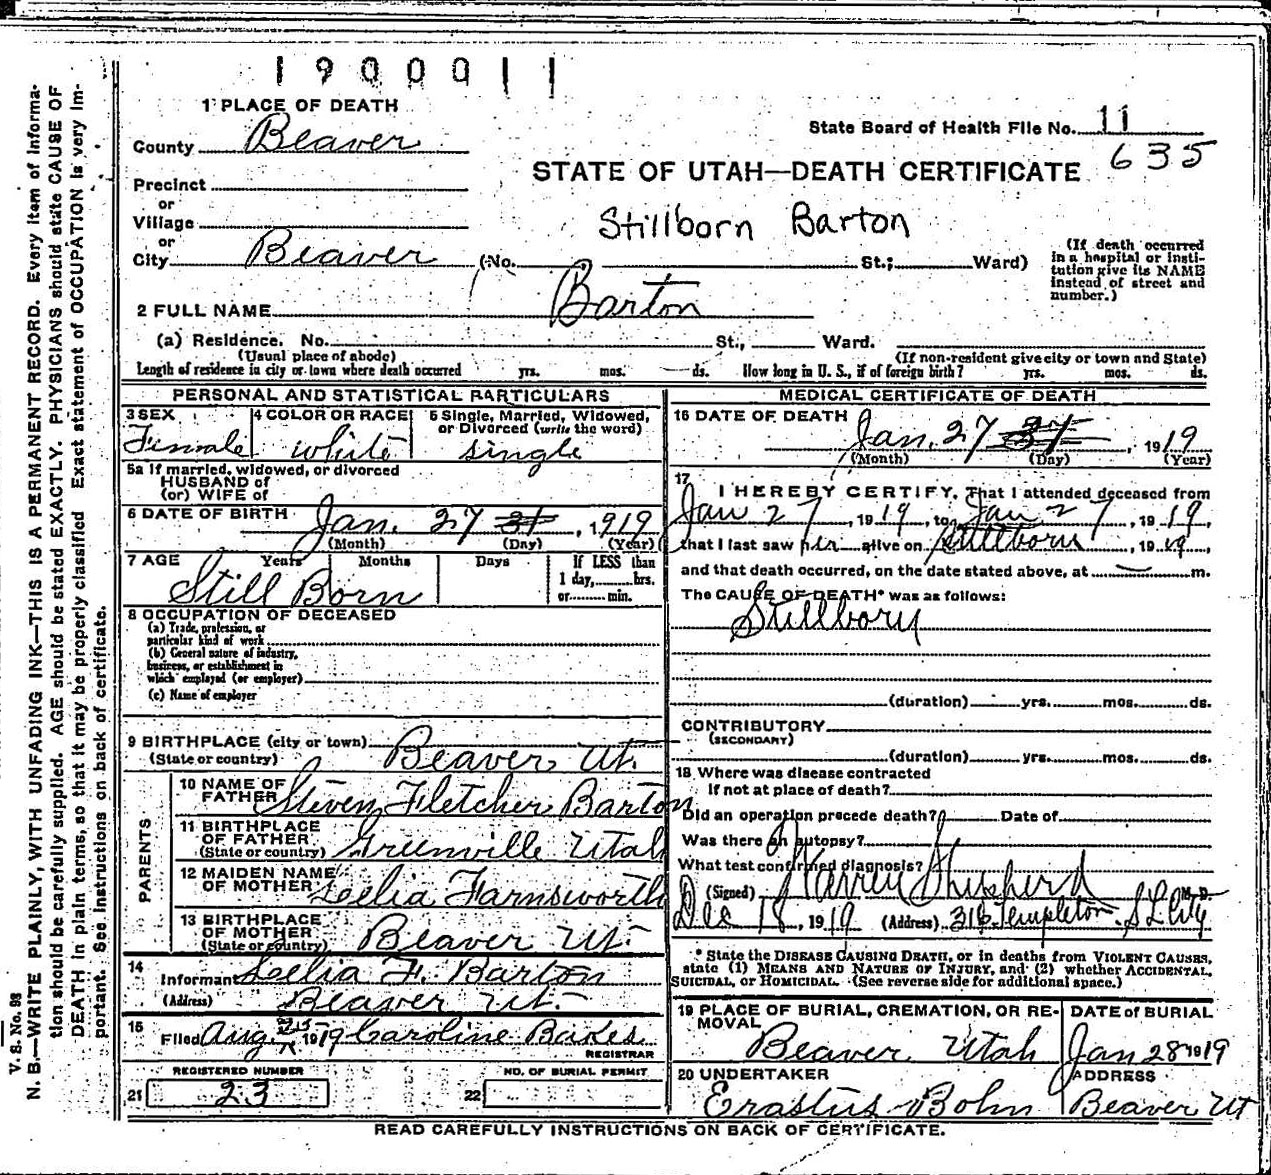 1900011
1 PLACE OF DEATH
State Board of Health File No. 11
635
County Beaver
STATE OF UTAH—DEATH CERTIFICATE
Precinct
or
Village
Stillborn Barton
or
City Beaver (No. St.; Ward)
(If death occurred in a hospital or insti-
tution give its NAME
instead of street and
number.)
2 FULL NAME Barton
(a) Residence. No. St., Ward.
(Usual place of abode) (If non-resident give city or town and State)
Length of residence in city or town where death occurred yrs. mos. ds. How long in U. S., if of foreign birth? yrs. mos. ds.
PERSONAL AND STATISTICAL PARTICULARS
3 SEX
Female
4 COLOR OR RACE
white
5 Single, Married, Widowed,
or Divorced (write the word)
single
5a If married, widowed, or divorced
HUSBAND of
(or) WIFE of
6 DATE OF BIRTH Jan. 27 31, 1919
(Month) (Day) (Year)
7 AGE Years Months Days If LESS than
1 day, hrs.
or min.
Still Born
8 OCCUPATION OF DECEASED
(a) Trade, profession, or
particular kind of work
(b) General nature of industry,
business, or establishment in
which employed (or employer)
(c) Name of employer
9 BIRTHPLACE (city or town) Beaver Ut.
(State or country)
PARENTS
10 NAME OF
FATHER Steven Fletcher Barton
11 BIRTHPLACE
OF FATHER
(State or country) Greenville Utah
12 MAIDEN NAME
OF MOTHER Lelia Farnsworth
13 BIRTHPLACE
OF MOTHER
(State or country) Beaver Ut.
14
Informant Lelia F. Barton
(Address) Beaver Ut.
15
Filed Aug. 1919 Caroline Bakes
REGISTRAR
REGISTERED NUMBER
21 23
NO. OF BURIAL PERMIT
22
MEDICAL CERTIFICATE OF DEATH
16 DATE OF DEATH Jan. 27, 1919
(Month) (Day) (Year)
17
I HEREBY CERTIFY, That I attended deceased from
Jan 27, 1919, to Jan 27, 1919,
that I last saw her alive on Stillborn, 1919,
and that death occurred, on the date stated above, at — m.
The CAUSE OF DEATH* was as follows:
Stillborn
(duration) yrs. mos. ds.
CONTRIBUTORY
(SECONDARY)
(duration) yrs. mos. ds.
18 Where was disease contracted
If not at place of death?
Did an operation precede death? Date of
Was there an autopsy?
What test confirmed diagnosis?
(Signed) Warren Shepherd M. D.
Dec 18, 1919 (Address) 316 Templeton S L City
* State the DISEASE CAUSING DEATH, or in deaths from VIOLENT CAUSES,
state (1) MEANS AND NATURE OF INJURY, and (2) whether ACCIDENTAL,
SUICIDAL, or HOMICIDAL. (See reverse side for additional space.)
19 PLACE OF BURIAL, CREMATION, OR RE-
MOVAL
Beaver Utah
DATE of BURIAL
Jan 28 1919
20 UNDERTAKER
Erastus Bohn
ADDRESS
Beaver Ut
READ CAREFULLY INSTRUCTIONS ON BACK OF CERTIFICATE.
V. S. No. 98
N. B.—WRITE PLAINLY, WITH UNFADING INK—THIS IS A PERMANENT RECORD. Every item of informa-
tion should be carefully supplied. AGE should be stated EXACTLY. PHYSICIANS should state CAUSE OF
DEATH in plain terms, so that it may be properly classified. Exact statement of OCCUPATION is very im-
portant. See instructions on back of certificate.